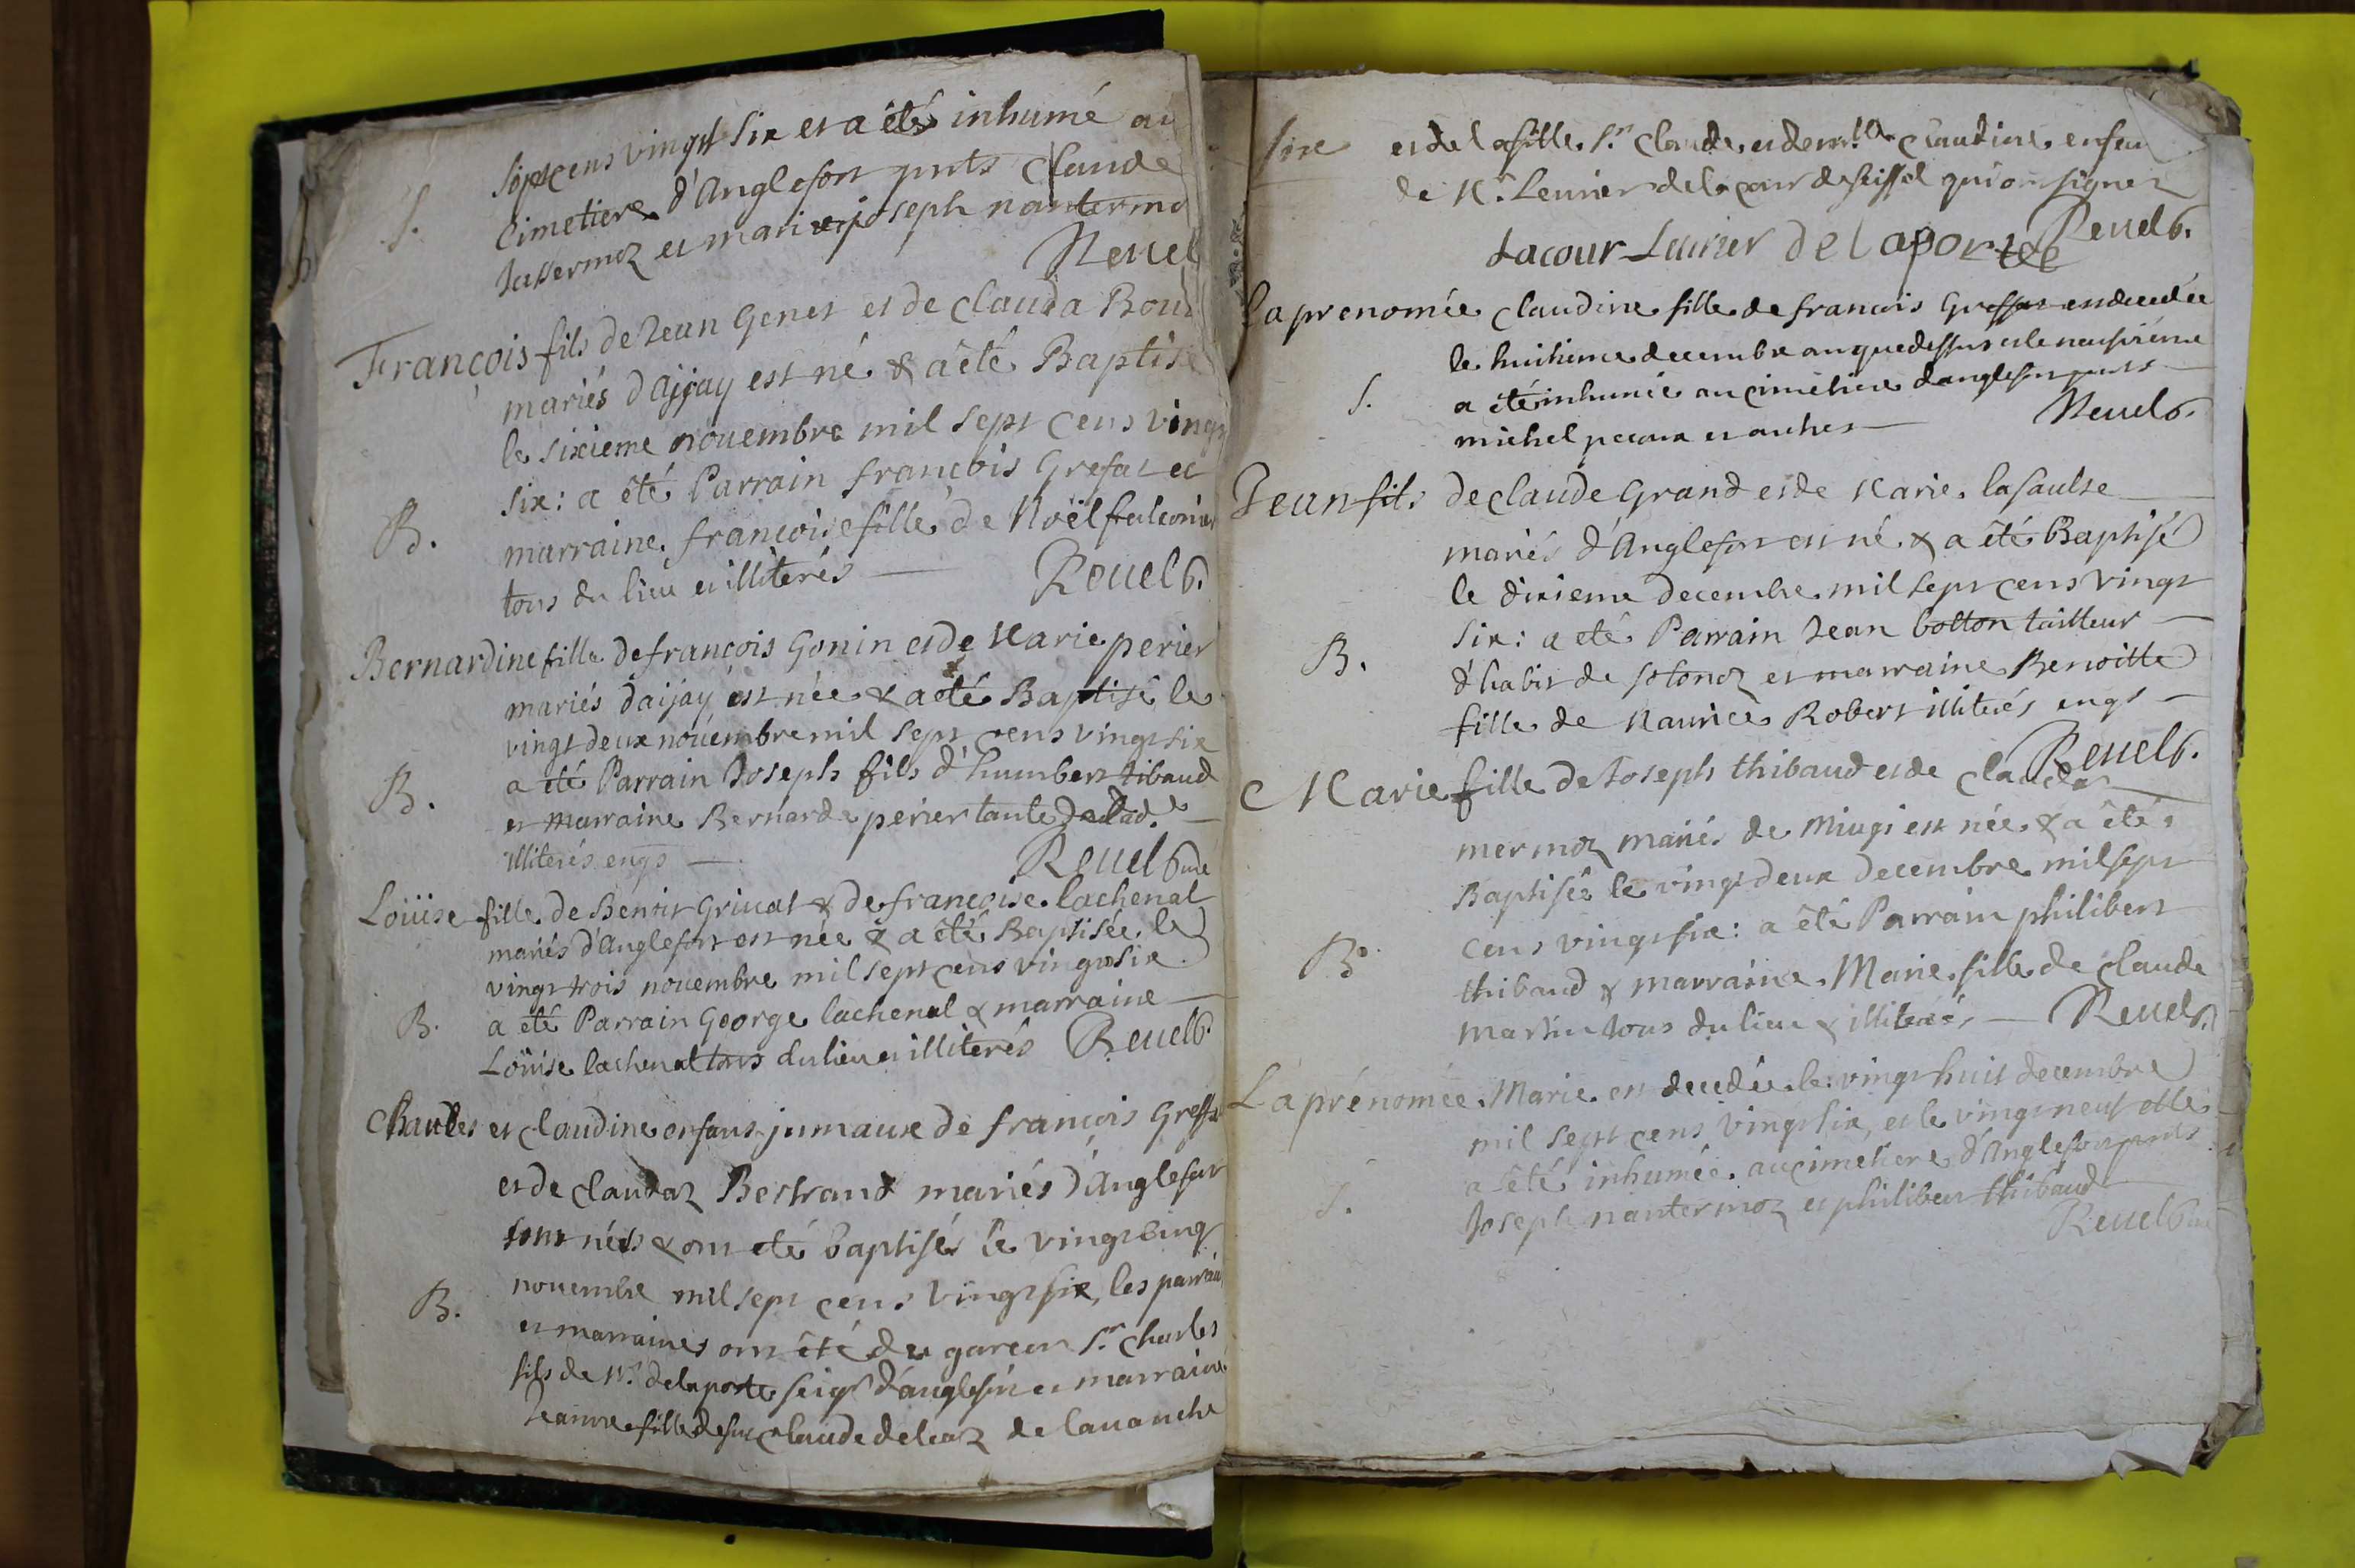 septcens vingt six et a été inhumé au
S. Cimetiere d'Anglefort pnts Claude
Jassermoz et marie joseph nantermo
Reuel
François fils de Jean Genet et de Clauda Bou
mariés d'Ajjay est né & a êté Baptisé
le sixieme nouembre mil sept cens vingt
six: a êté Parrain françois Grefat et
B. marraine françoise fille de Noël falconier
tous du lieu et illiterés — Reuel b.
Bernardine fille de françois Gonin et de Marie perier
mariés daijay est née & a eté Baptisé le
vingt deux nouembre mil sept cens vingt six
B. a eté Parrain Joseph fils d'humbert tibaud
et marraine Bernarde perier tante
illiterés enqs — Reuel b
Loüise fille de Benoit Griuat & de françoise lachenal
mariés d'Anglefort est née & a êté Baptisée le
vingt trois nouembre mil sept cens vingt six
B. a été Parrain George lachenal & marraine
Loüise lachenal tous du lieu et illiterés Reuel b.
Charles et Claudine enfans jumaux de françois Greffa
et de claudaz Bertrand mariés d'Anglefort
sont nés & ont eté baptisés le vingt cinq
nouembre mil sept cens vingt six, les parrai
B. et marraines ont êté du garcon Sr. Charles
fils de Mr. delaporte seigr d'anglefort et marraine
Jeanne fille de feu claude deleaz de lauanche
six et de la fille Sr. Claude et demlle Claudine enfan
de Mr. Leurier de la cour de seissel qui ont signez
Lacour Leurier Delaporte Reuel b.
La prenomée Claudine fille de francois Greffat est decedée
le huitieme decembre an que dessus et le neusiéme
S. a été inhumée au cimetiere d'anglefort pnts
michel pecoux et autres — Reuel b.
Jean fils de Claude Grand et de Marie lasaulse
mariés d'Anglefort est né & a été Baptisé
le dixieme decembre mil sept cens vingt
six: a eté Parrain Jean bolton tailleur —
B. d'habit de sotonoz et marraine Benoitte
fille de Maurice Robert illiterés enqs —
Reuel b.
Marie fille de Joseph thibaud et de Clauda
mermoz mariés de Miugi est née & a êté
Baptisée le vingt deux decembre mil sept
cens vingt six: a êté Parrain philibert
B. thibaud & marraine Marie fille de Claude
martin tous du lieu & illiterés — Reuel b.
La prénomée Marie est decedée le vingt huit decembre
mil sept cens vingt six, et le vingt neuf elle
a êté inhumée au cimetiere d'Anglefort pnts
S. Joseph nantermoz et philibert thibaud
Reuel b